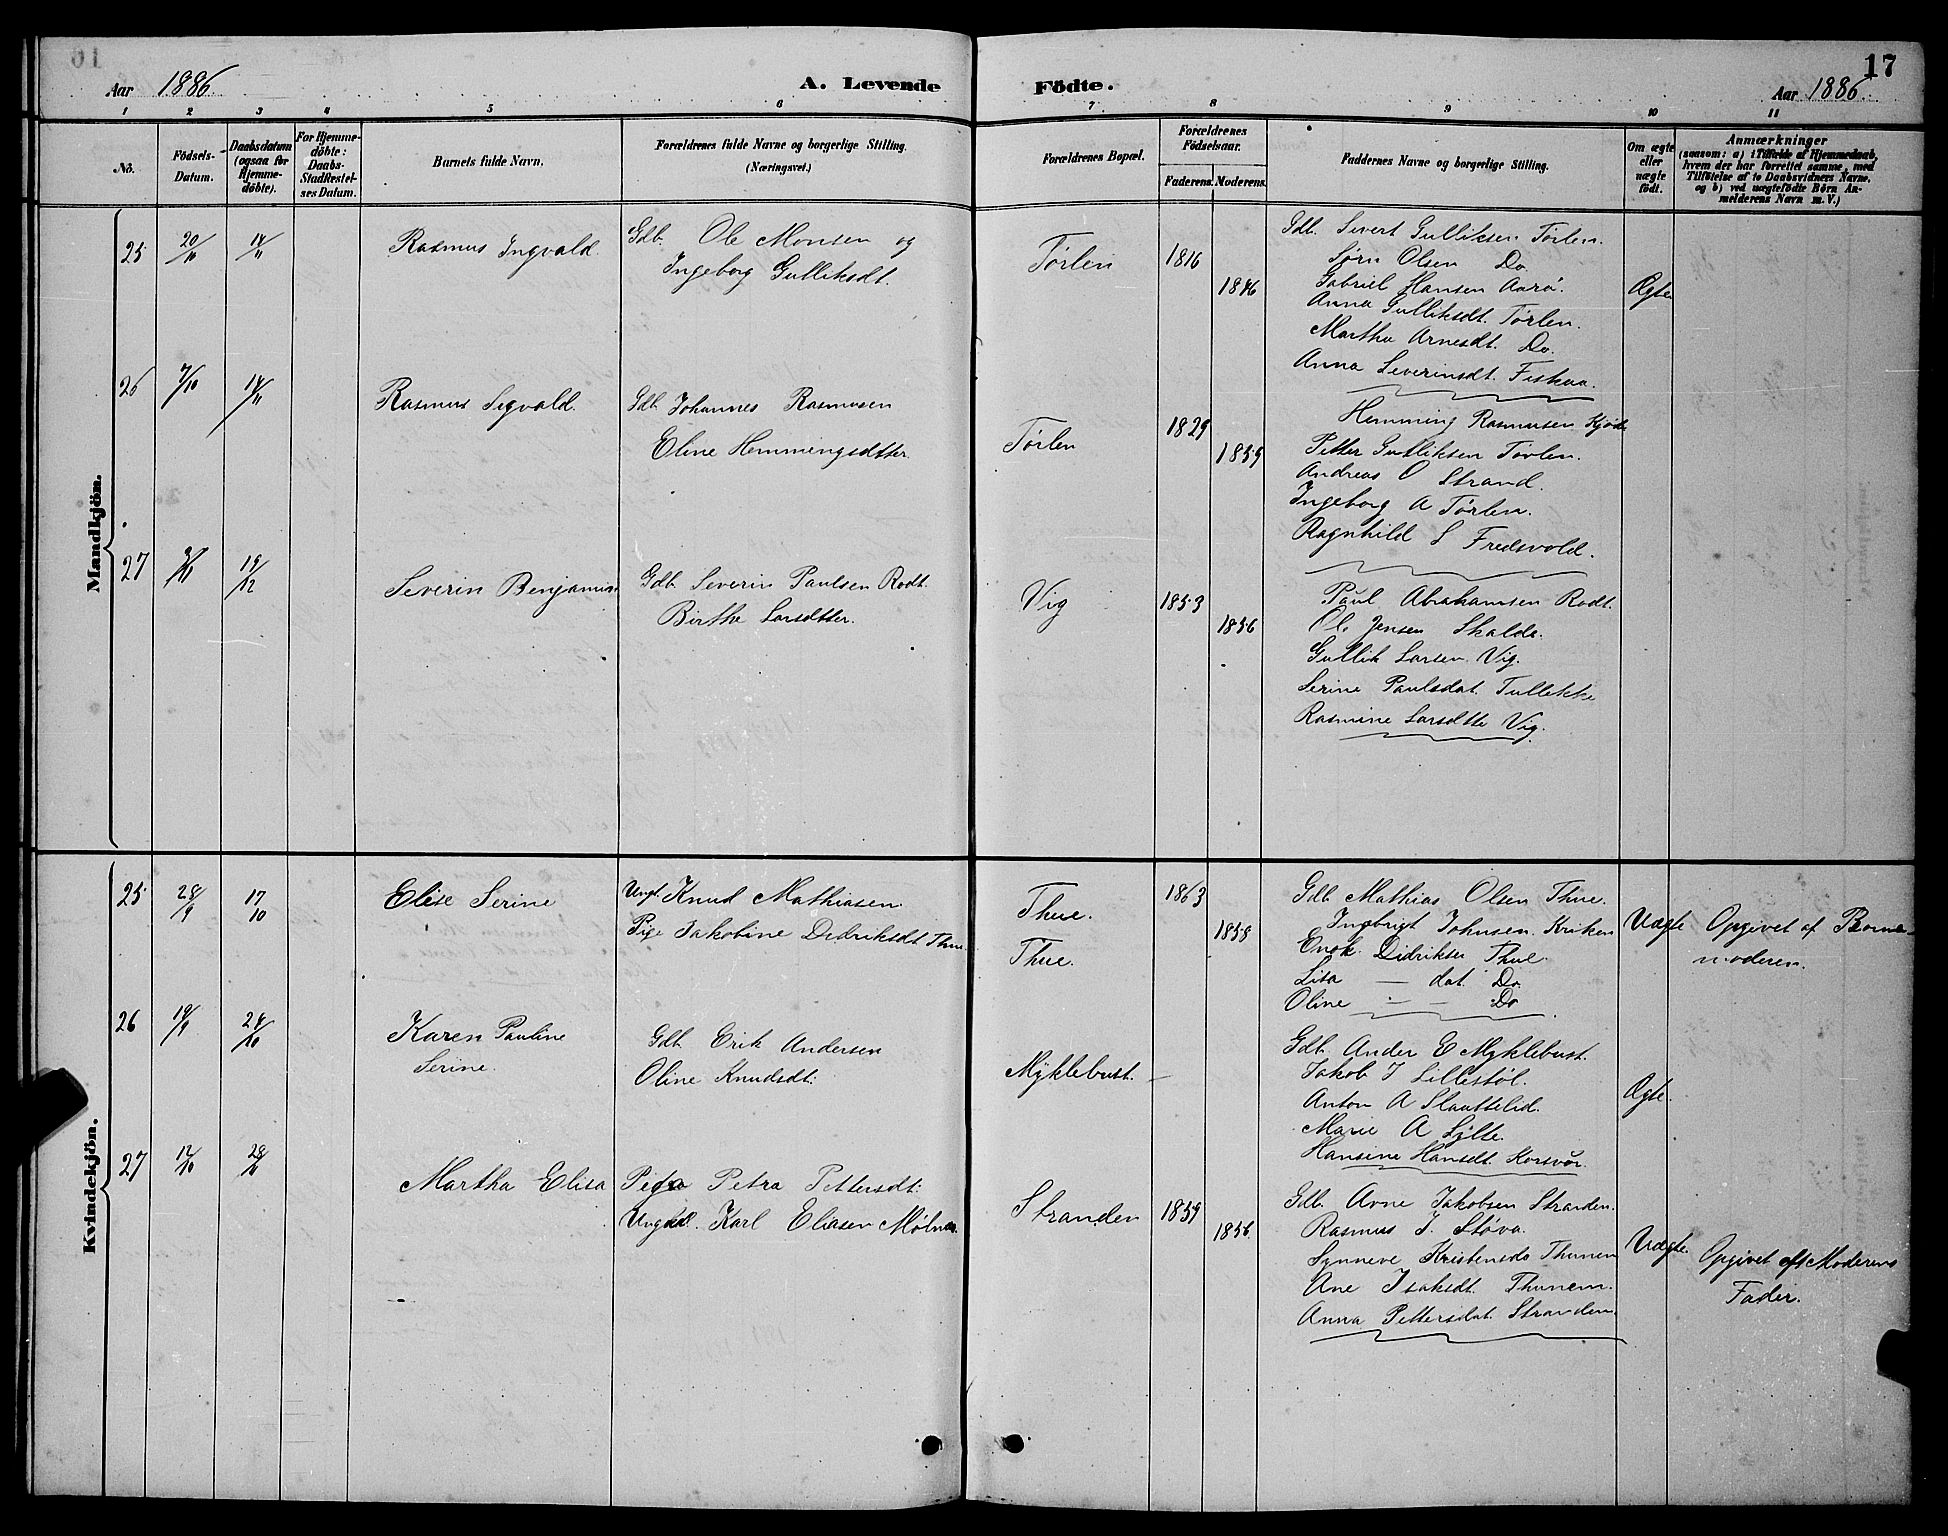 17
Aar 1886.
A. Levende Födte.
Aar 1886.
1 2 3 4 5 6 7 8 9 10 11
No.
Födsels-Datum.
Daabsdatum (ogsaa for Hjemme-döbte).
For Hjemme-döbte: Daabs-Stadfæstel-ses Datum.
Barnets fulde Navn.
Forældrenes fulde Navne og borgerlige Stilling.
(Næringsvei.)
Forældrenes Bopæl.
Forældrenes Födselsaar.
Faderens. Moderens.
Faddernes Navne og borgerlige Stilling.
Om ægte eller uægte födt.
Anmærkninger
(saasom: a) i Tilfælde af Hjemmedaab, hvem der har forrettet samme, med Tilföielse af to Daabsvidners Navne, og b) ved uægtefödte Börn Anmelderens Navn m. V.)
Mandkjön.
25 20/10 14/11 Rasmus Ingvald.
Gdb. Ole Monsen og
Ingeborg Gulliksdt.
Tørlen 1816 1846
Gdb. Sivert Gulliksen Tørlen.
Sörn Olsen Do
Gabriel Hansen Aarö.
Anna Gulliksdt. Tørlen.
Martha Arnesdt. Do.
Anna Severinsdt. Fiskaa.
Ægte
26 7/10 14/11 Rasmus Sigvald.
Gdb. Johannes Rasmusen
Eline Hemmingsdtter.
Tørlen 1829 1859
Hemming Rasmusen
Petter Gulliksen Tørlen.
Andreas O Strand.
Ingeborg A Tørlen.
Ragnhild S Fredsvold.
27 19/12 Severin Benjamin
Gdb. Severin Paulsen Rodt.
Birthe Larsdtter.
Vig 1853 1856
Paul Abrahamsen Rodt.
Ol. Jensen Skalde.
Gullik Larsen Vig.
Serine Paulsdat. Tullikke
Rasmine Larsdtte Vig.
Kvindekjön.
25 28/9 17/10 Elise Serine
Ungk. Knud Mathiasen.
Pige Jakobine Didriksdt Thue.
Thue.
Thue.
1863 1858
Gdb. Mathias Olsen Thue.
Ingbrigt Johnsen Kriken
Enok Didriksen Thue.
Lisa — dat. Do.
Oline — — Do
Uægte Opgivet af Barne-
moderen.
26 19/9 24/10 Karen Pauline
Serine.
Gdb. Erik Andersen
Oline Knudsdt.
Myklebust. —
Gdb. Ander E Myklebust.
Jakob J Lillestöl.
Anton A Slauttelid.
Marie A Sylte.
Hansine Hansdt. Korsvör.
Ægte.
27 12/10 28/11 Martha Elisa
Pige Petra Pettersdt.
Ungkl. Karl Eliasen Mölnes.
Stranden 1859 1856.
Gdb. Arne Jakobsen Stranden.
Rasmus J. Stöva.
Synneve Kristensdt Thunem
Ane Isaksdt. Thunem.
Anna Pettersdat. Stranden.
Uægte. Opgivet af Moderens
Fader.